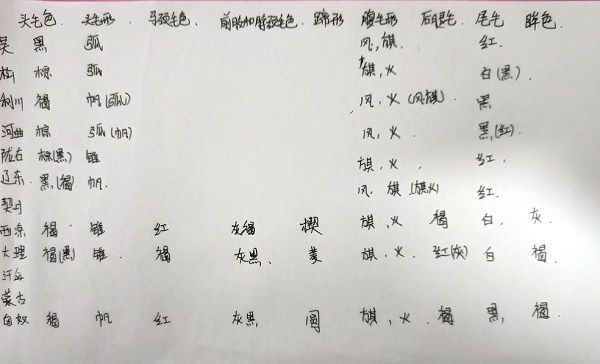 头毛色、头毛形、马颈毛色、前肢和肩颈毛色、蹄形 胸毛形 后腿毛、尾毛 眸色
吴 黑 弧 风,旗. 红.
棕 弧 旗,火 白(黑).
利川 褐 帆(弧) 风,火(风旗). 黑
河曲 棕 弧(帆) 风,火. 黑,(红).
陇右 棕(黑) 锥 旗,火. 红.
辽东. 黑,(褐) 帆. 风.旗.(旗火) 红.
契丹
西凉 褐. 锥 红 灰褐 楔 旗,火 褐 白, 灰.
大理 褐(黑) 锥. 褐 灰黑、 菱 旗,火. 红(灰) 白 褐.
汗血
蒙古
匈奴 褐 帆 红 灰黑 圆 旗,火. 褐 黑, 褐.